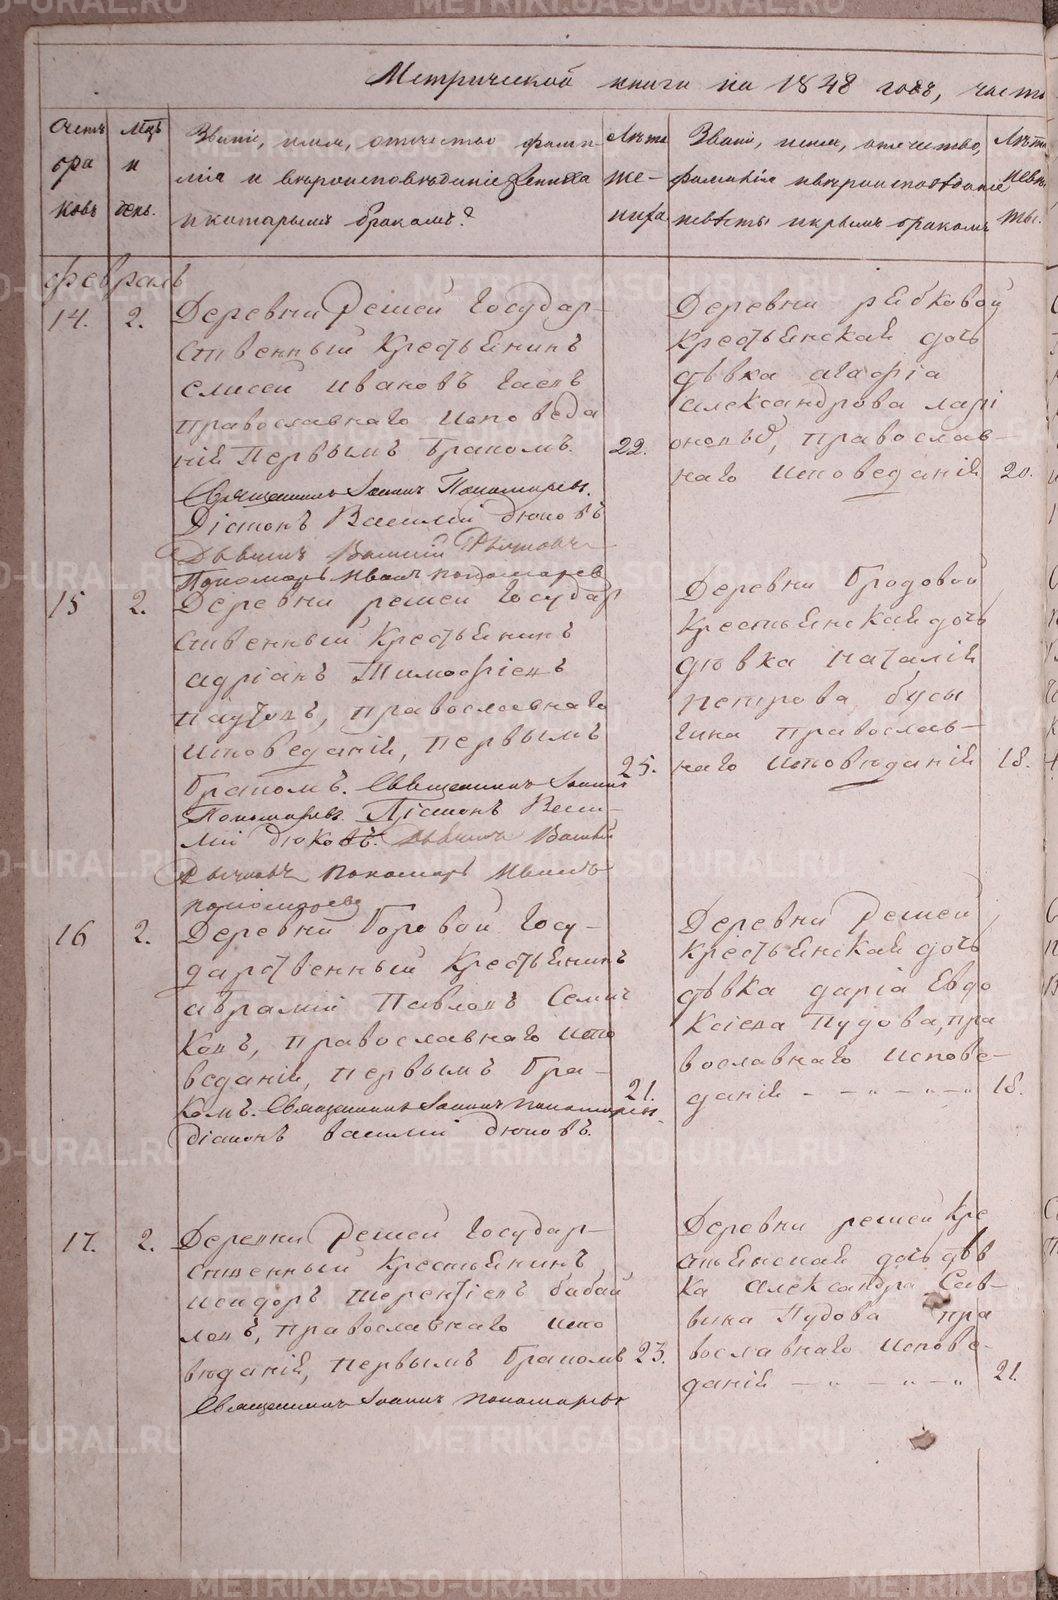 Метрической книги на 1848 годъ, часть
Счетъ браковъ
Мцъ и день.
Званіе, имя, отчество фамилія и вѣроисповѣданіе Жениха и которымъ бракомъ?
Лѣта жениха
Званіе, имя, отчество, фамилія и вѣроисповѣданіе невѣсты и крымъ бракомъ
Лѣта невѣсты.
февраль
14.
2.
Деревни Решей Государ-
ственный Крестьянинъ
Елисей Ивановъ
православнаго исповеда
ній Первымъ Бракомъ.
22.
Священникъ Іоаннъ Пономаревъ.
Діаконъ Василій Дюковъ
Дьячекъ Василій
Пономарь Иванъ Пономарев
Деревни рябковой
Крестьянская дочь
дѣвка агафіа
александрова ларі
онова, православ-
наго исповеданій
20.
15
2.
Деревни решей Государ
ственный Крестьянинъ
адріанъ Тимофіевъ
православнаго
исповеданій, первымъ
Бракомъ. Священникъ Іоаннъ
25.
Пономаревъ. Діаконъ Васи-
лій Дюковъ. Дьячекъ Василій
Пономарь Иванъ
пономаревъ
Деревни Бродовой
Крестьянская дочь
дѣвка Наталій
петрова бусы
гина православ-
наго исповѣданій
18.
16
2.
Деревни Боровой Госу-
дарственный Крестьянинъ
аврамій Павловъ Семи
ковъ, православнаго испо
веданій, первымъ Бра-
21.
комъ. Священникъ Іоаннъ пономаревъ.
Діаконъ василій Дюковъ.
Деревни Решей
Крестьянская дочь
дѣвка даріа Евдо
Ксіева Пудова, пра
вославнаго испове-
даній - - „ - „ - „
18.
17.
2.
Деревни Решей Государ-
ственный Крестьянинъ
исидоръ терентіевъ бабай
ловъ, православнаго испо
вѣданій, первымъ Бракомъ
23.
Священникъ Іоаннъ пономаревъ
Деревни решей Кре
стьянская дочь дѣв
ка александра Сав-
вина Пудова пра
вославнаго испове-
даній - „ - „ - „
21.
METRIKI.GASO-URAL.RU